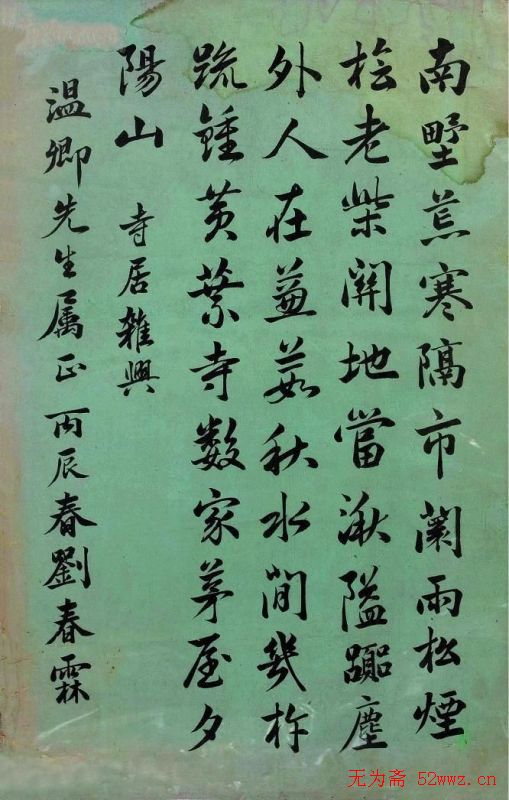 南墅荒寒隔市闤雨松煙
桧老柴關地當湫隘囂塵
外人在蒹葭秋水間幾杵
疏鍾黄葉寺數家茅屋夕
陽山 寺居雜興
温卿先生属正丙辰春劉春霖
无为斋 52wwz.cn